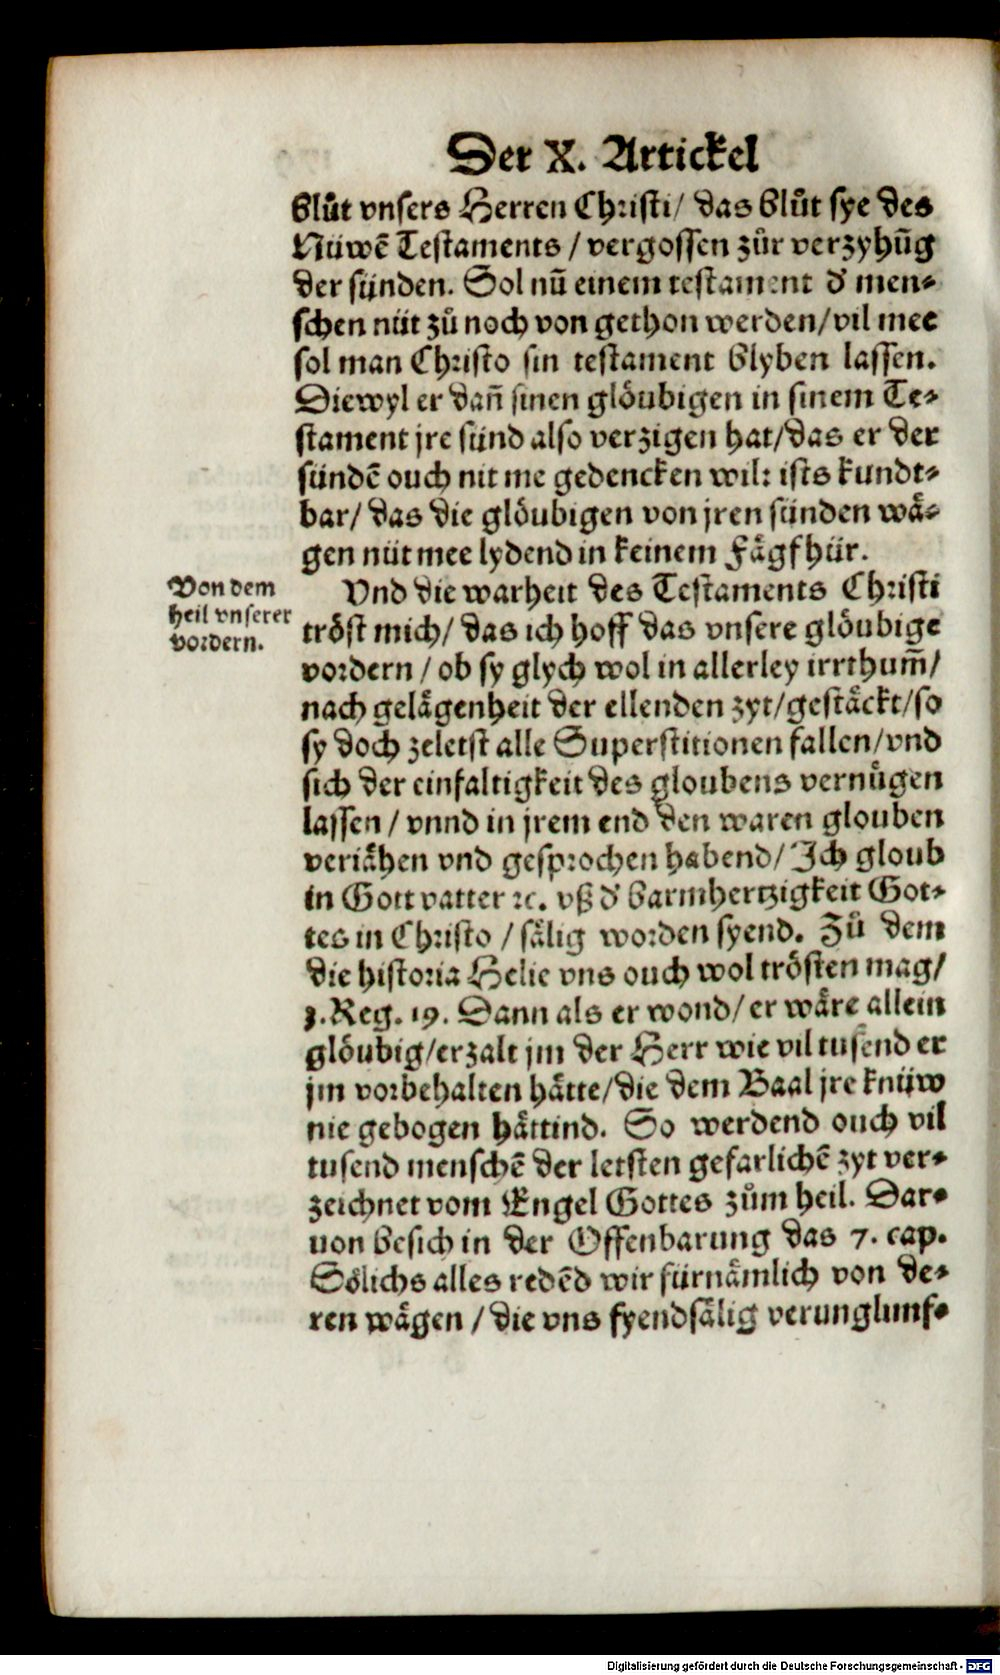 Der X. Artickel
blůt vnsers Herren Christi/ das blůt sye des
Nüwē Testaments / vergossen zůr verzyhūg
der sünden. Sol nū einem testament d' men-
schen nüt zů noch von gethon werden/vil mee
sol man Christo sin testament blyben lassen.
Diewyl er dañ sinen glöubigen in sinem Te-
stament jre sünd also verzigen hat/das er der
sündē ouch nit me gedencken wil: ists kundt-
bar/ das die glöubigen von jren sünden wä-
gen nüt mee lydend in keinem Fägfhür.
Von dem
heil vnserer
vordern.
Vnd die warheit des Testaments Christi
tröst mich/ das ich hoff das vnsere glöubige
vordern / ob sy glych wol in allerley irrthum̄/
nach gelägenheit der ellenden zyt/gestäckt/so
sy doch zeletst alle Superstitionen fallen/vnd
sich der einfaltigkeit des gloubens vernůgen
lassen / vnnd in jrem end den waren glouben
veriähen vnd gesprochen habend/ Ich gloub
in Gott vatter ꝛc. vß d' barmhertzigkeit Got-
tes in Christo / sälig worden syend. Zů dem
die historia Helie vns ouch wol trösten mag/
3. Reg. 19. Dann als er wond/ er wäre allein
glöubig/erzalt jm der Herr wie vil tusend er
jm vorbehalten hätte/die dem Baal jre knüw
nie gebogen hättind. So werdend ouch vil
tusend menschē der letsten gefarlichē zyt ver-
zeichnet vom Engel Gottes zům heil. Dar-
uon besich in der Offenbarung das 7. cap.
Sölichs alles redēd wir fürnämlich von de-
ren wägen / die vns fyendsälig verunglimf-
Digitalisierung gefördert durch die Deutsche Forschungsgemeinschaft - DFG